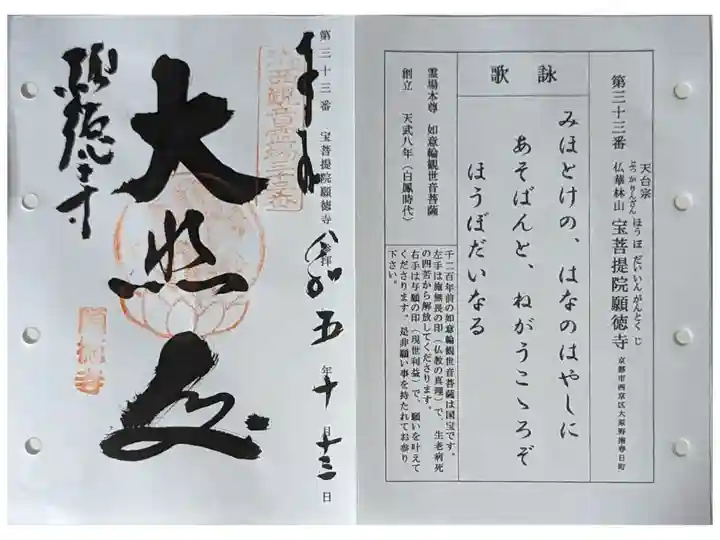 第三十三番
天台宗
仏華林山 宝菩提院願徳寺
ぶっかりんざん ほうぼだいいんがんとくじ
京都市西京区大原野南春日町
詠歌
みほとけの、はなのはやしに
あそばんと、ねがうこゝろぞ
ほうぼだいなる
霊場本尊 如意輪観世音菩薩
創立 天武八年(白鳳時代)
千二百年前の如意輪観世音菩薩は国宝です。
左手は施無畏の印(仏教の真理)で、生老病死
の四苦から解放してくださります。
右手は与願の印(現世利益)で、願いを叶えて
くださります。是非願い事を持たれてお参り
下さい。
第三十三番 宝菩提院願徳寺 参拝
令和五年十月十三日
洛西観音霊場三十三番
大悲
願徳寺
願徳寺